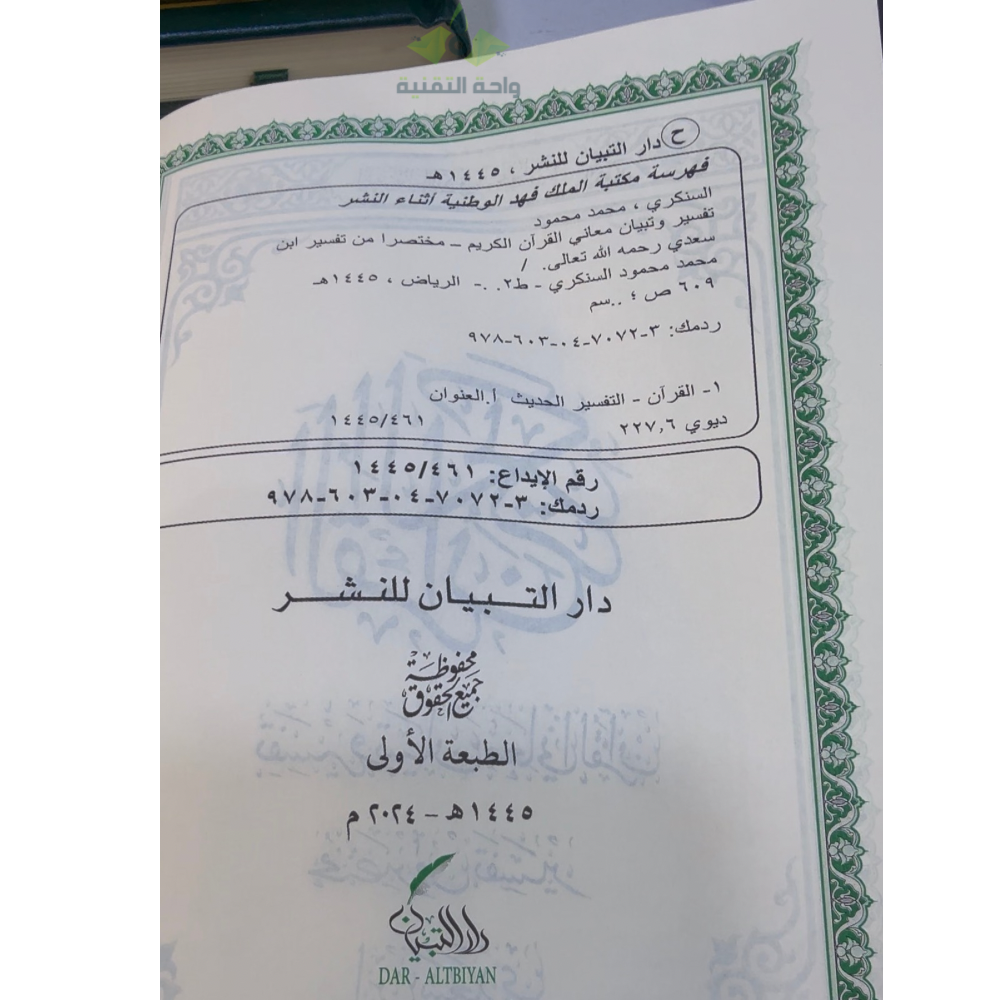 واحة التقنية
ح دار التبيان للنشر ، ١٤٤٥هـ
فهرسة مكتبة الملك فهد الوطنية أثناء النشر
السنكري ، محمد محمود
تفسير وتبيان معاني القرآن الكريم – مختصرا من تفسير ابن
سعدي رحمه الله تعالى. /
محمد محمود السنكري - ط٢. .- الرياض ، ١٤٤٥هـ
٦٠٩ ص ؛ ..سم
ردمك: ٣-٧٠٧٢-٠٤-٦٠٣-٩٧٨
١- القرآن - التفسير الحديث أ.العنوان
ديوي ٢٢٧,٦ ١٤٤٥/٤٦١
رقم الإيداع: ١٤٤٥/٤٦١
ردمك: ٣-٧٠٧٢-٠٤-٦٠٣-٩٧٨
دار التبيان للنشر
جميع الحقوق محفوظة
الطبعة الأولى
١٤٤٥هـ - ٢٠٢٤م
دار التبيان
DAR - ALTBIYAN